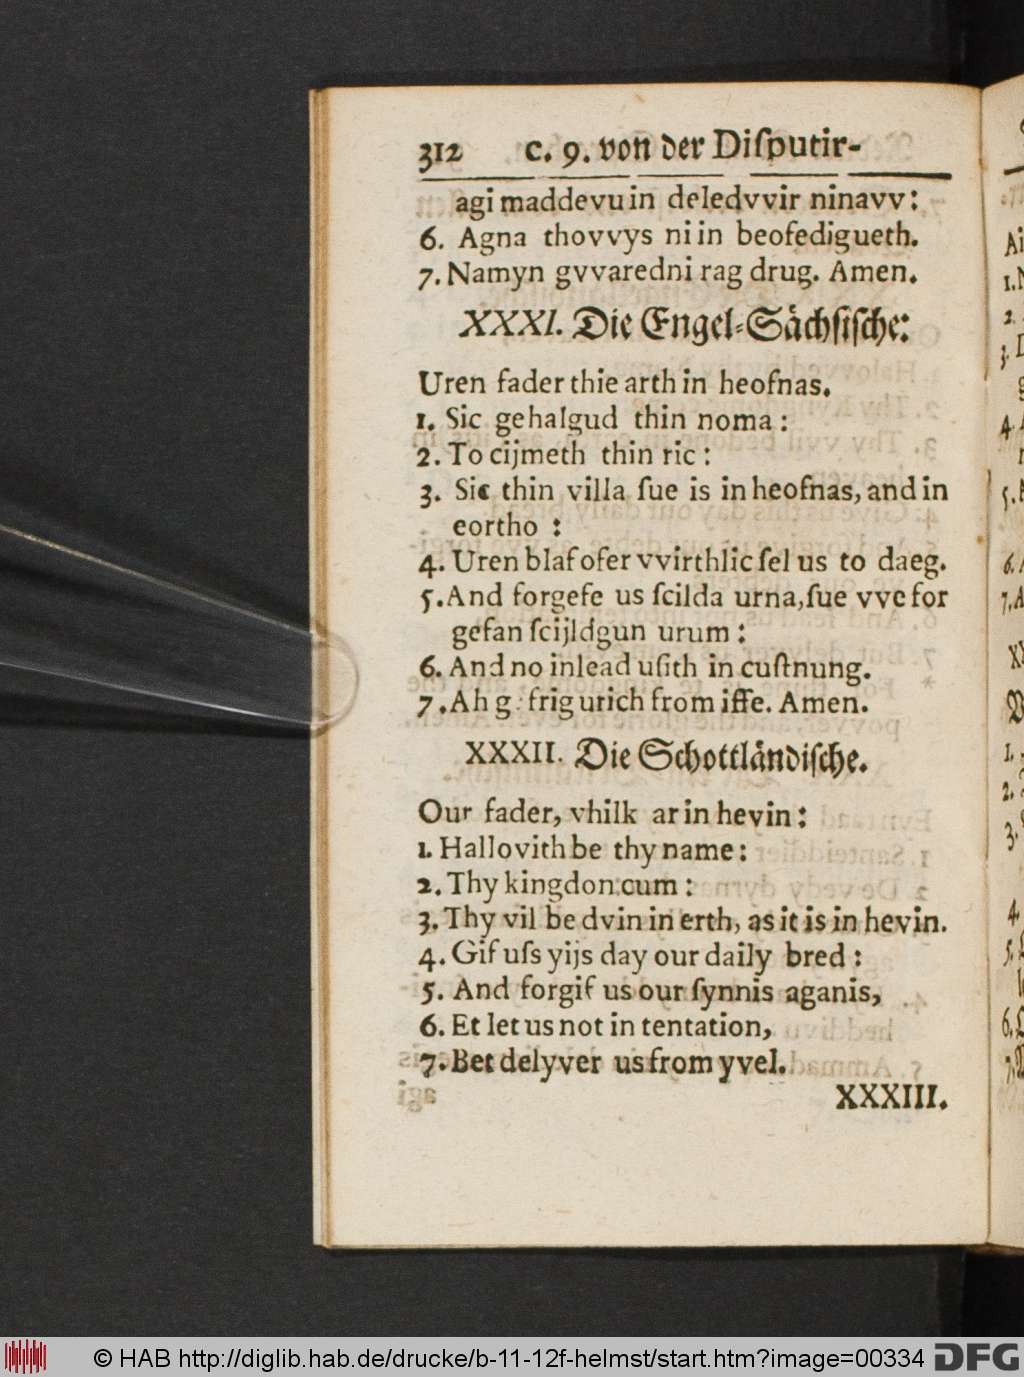 312 c. 9. von der Diſputir-
agi maddevu in deledvvir ninavv:
6. Agna thovvys ni in beofedigueth.
7. Namyn gvvaredni rag drug. Amen.
XXXI. Die Engel-Sächſiſche:
Uren fader thie arth in heofnas.
1. Sic gehalgud thin noma:
2. To cijmeth thin ric:
3. Sic thin villa ſue is in heofnas, and in
eortho:
4. Uren blaf ofer vvirthlic ſel us to daeg.
5. And forgefe us ſcilda urna, ſue vve for
gefan ſcijldgun urum:
6. And no inlead uſith in cuſtnung.
7. Ah g frig urich from iffe. Amen.
XXXII. Die Schottländiſche.
Our fader, vhilk ar in hevin:
1. Hallovith be thy name:
2. Thy kingdon cum:
3. Thy vil be dvin in erth, as it is in hevin.
4. Gif uſs yijs day our daily bred:
5. And forgif us our ſynnis aganis,
6. Et let us not in tentation,
7. Bet delyver us from yvel.
XXXIII.
© HAB http://diglib.hab.de/drucke/b-11-12f-helmst/start.htm?image=00334 DFG